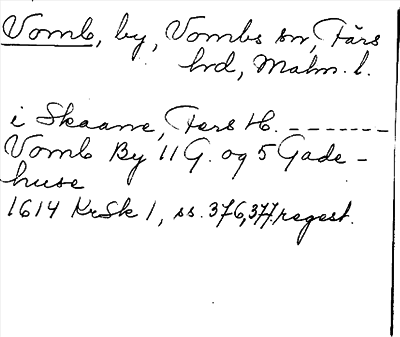 Vomb, by, Vombs sn, Färs
hrd, Malm. l.
i Skaane, Fers H. -------
Vomb By 11 G. og 5 Gade-
huse
1614 KrSk 1, ss. 376, 377. regest.